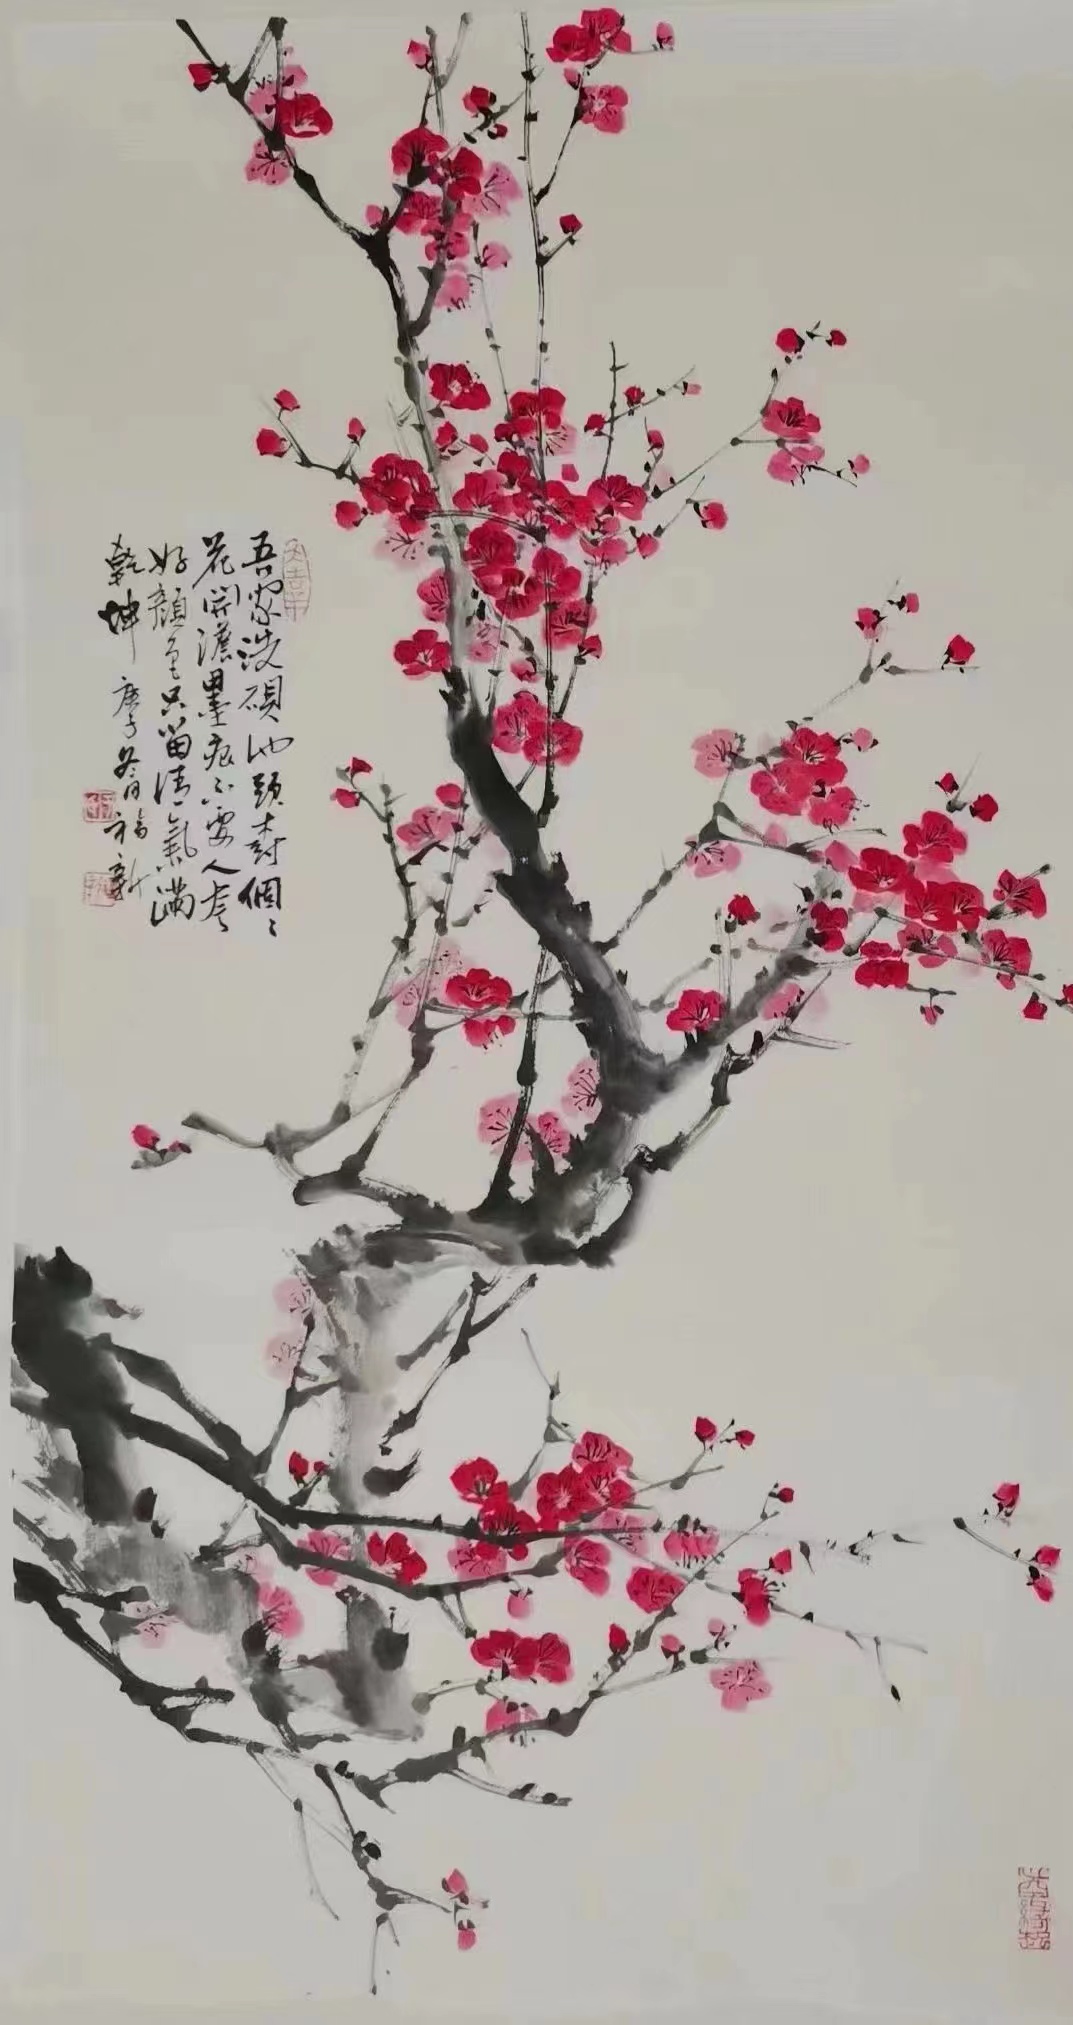 吾家洗硯池頭树個〻
花開澹墨痕不要人夸
好顏色只留清氣滿
乾坤 庚子冬月福新